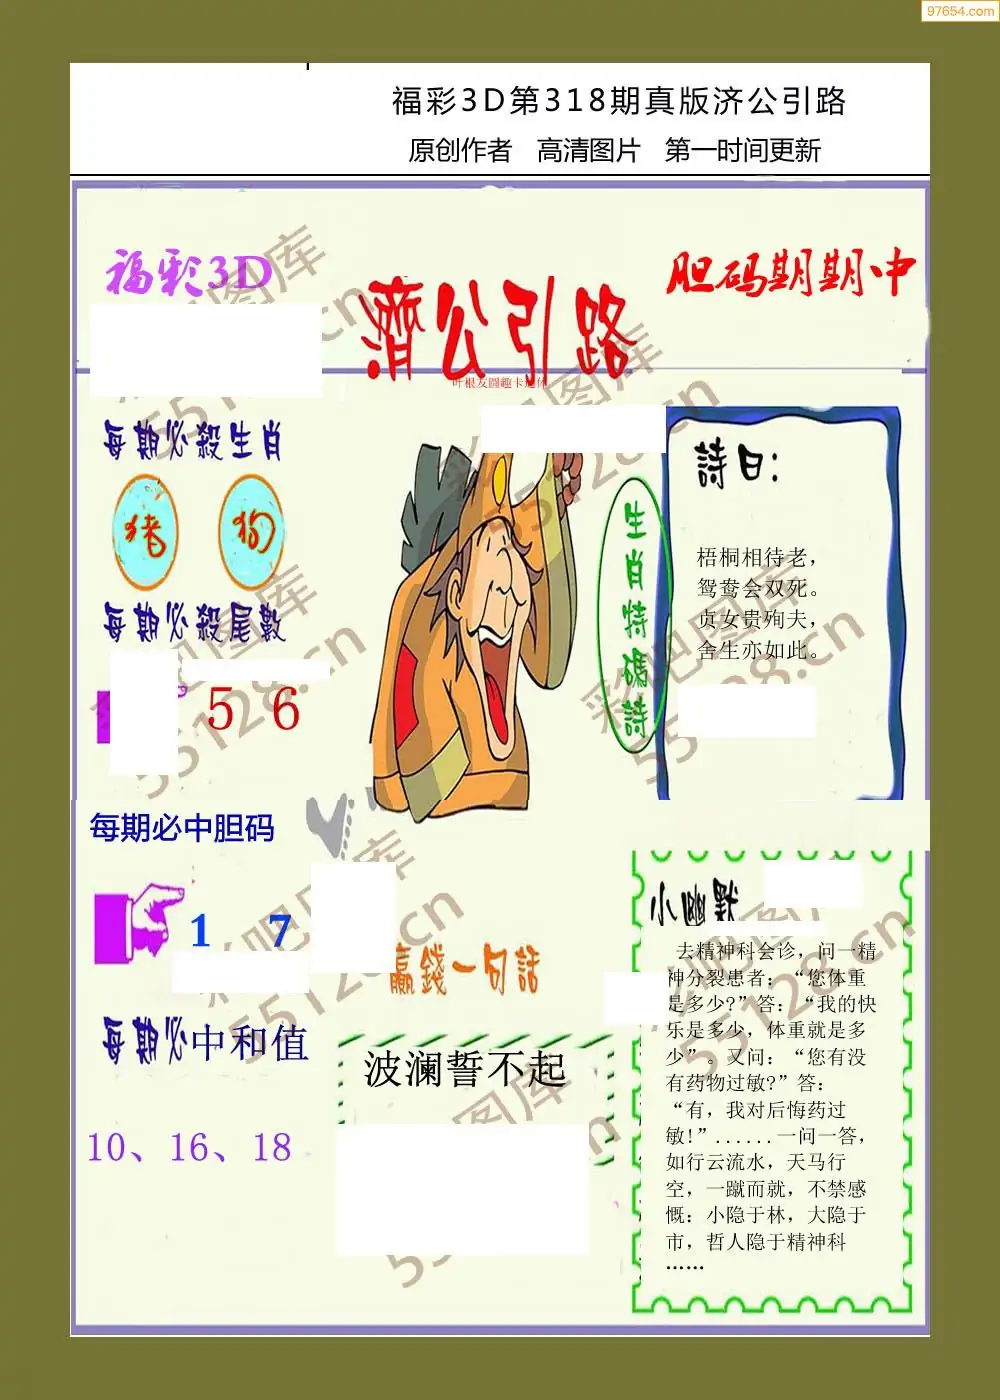 97654.com
福彩3D第318期真版济公引路
原创作者 高清图片 第一时间更新
福彩3D
胆码期期中
濟公引路
每期必殺生肖
猪 狗
每期必殺尾數
5 6
每期必中胆码
1 7
每期必中和值
10、16、18
生肖特碼詩
詩曰:
梧桐相待老，
鸳鸯会双死。
贞女贵殉夫，
舍生亦如此。
贏錢一句話
波澜誓不起
小幽默
去精神科会诊，问一精
神分裂患者：“您体重
是多少?”答：“我的快
乐是多少，体重就是多
少”。又问：“您有没
有药物过敏?”答：
“有，我对后悔药过
敏!”......一问一答，
如行云流水，天马行
空，一蹴而就，不禁感
慨：小隐于林，大隐于
市，哲人隐于精神科
……
彩吧图库
55128.cn